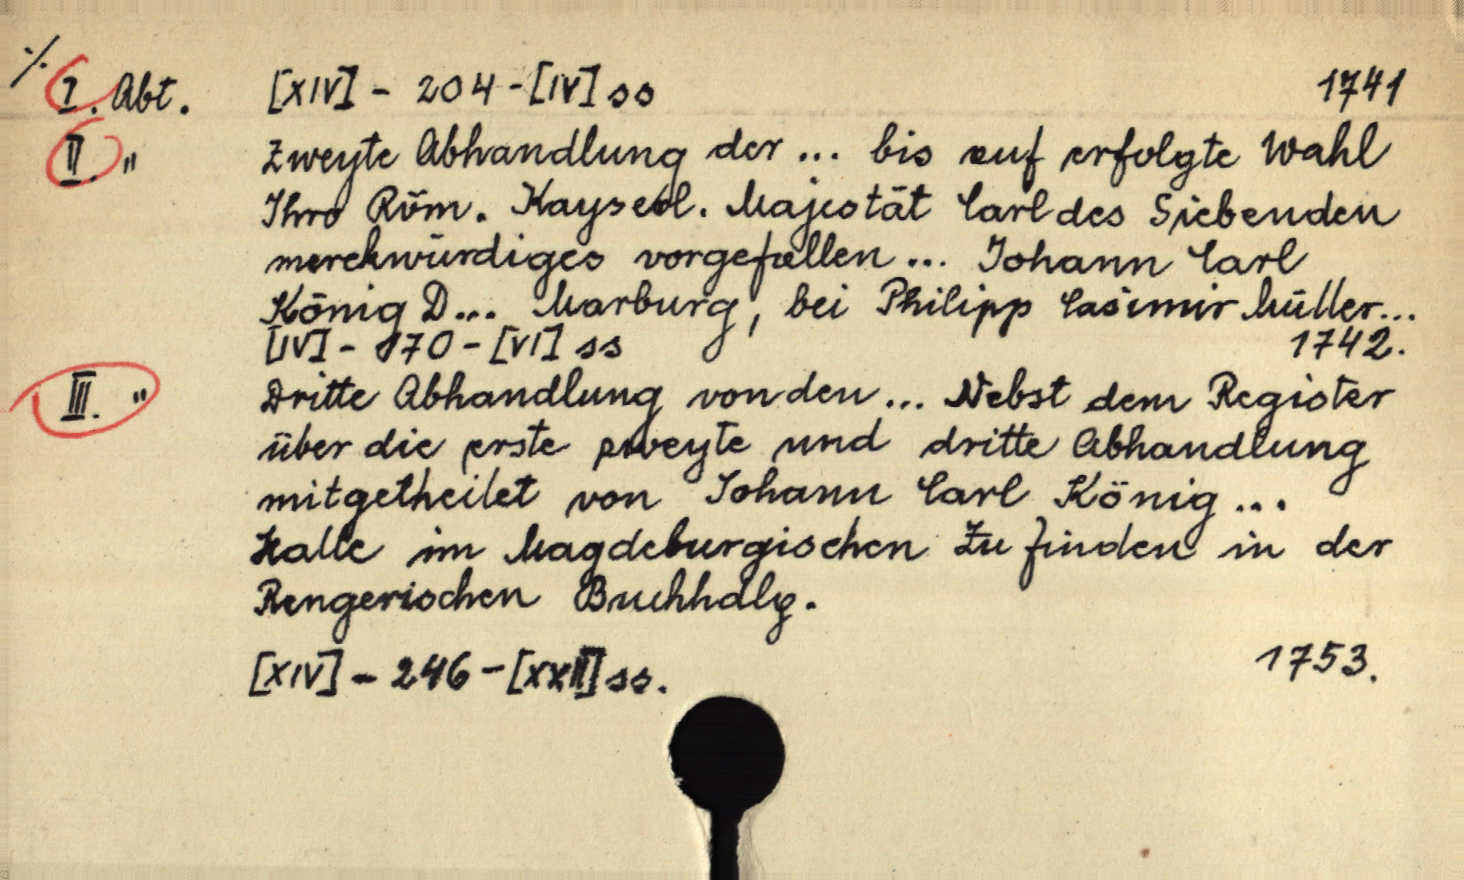 ·/.
I. Abt. [XIV] - 204 - [IV] ss 1741
II. " Zweyte Abhandlung der ... bis auf erfolgte Wahl
Ihro Röm. Kayserl. Majestät Carl des Siebenden
merckwürdiges vorgefallen ... Johann Carl
König D... Marburg, bei Philipp Casimir Müller...
[IV] - 870 - [VI] ss 1742.
III. " Dritte Abhandlung von den ... Nebst dem Register
über die erste zweyte und dritte Abhandlung
mitgetheilet von Johann Carl König ...
Halle im Magdeburgischen Zu finden in der
Rengerischen Buchhdlg.
[XIV] - 246 - [XXII] ss. 1753.